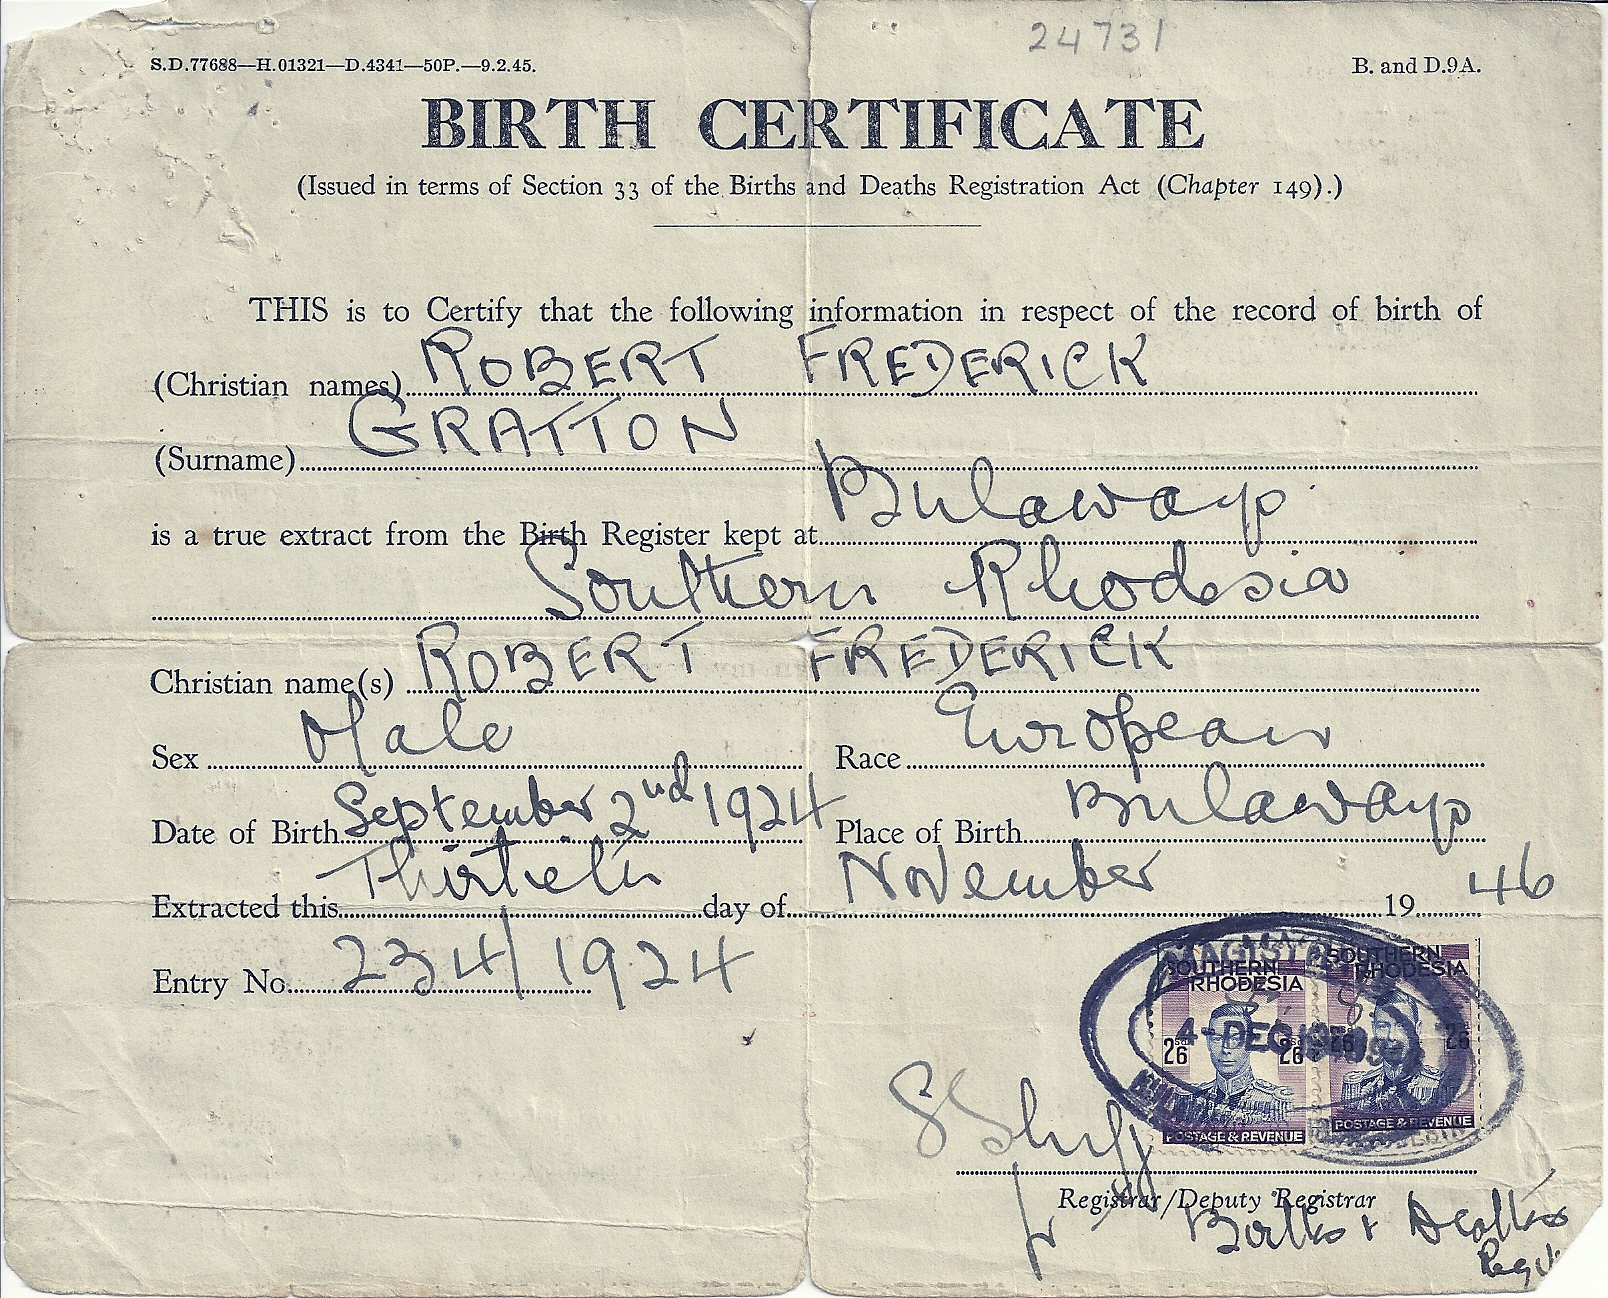 24731
S.D.77688—H.01321—D.4341—50P.—9.2.45. B. and D.9A.
BIRTH CERTIFICATE
(Issued in terms of Section 33 of the Births and Deaths Registration Act (Chapter 149).)
THIS is to Certify that the following information in respect of the record of birth of
(Christian names) ROBERT FREDERICK
(Surname) GRATTON
is a true extract from the Birth Register kept at Bulawayo.
Southern Rhodesia
Christian name(s) ROBERT FREDERICK
Sex Male Race European
Date of Birth September 2nd 1924 Place of Birth Bulawayo
Extracted this Thirtieth day of November 19 46
Entry No. 234/1924
SOUTHERN RHODESIA SOUTHERN RHODESIA
4-DEC
2/6 2/6 2/6
POSTAGE & REVENUE POSTAGE & REVENUE
Registrar/Deputy Registrar
Births & Deaths